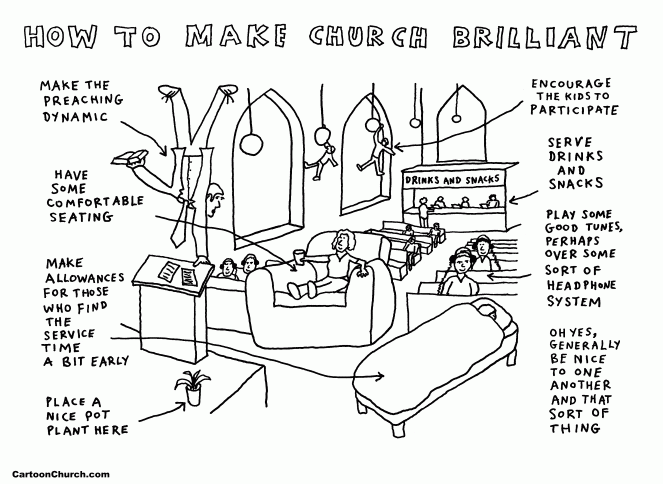 HOW TO MAKE CHURCH BRILLIANT
MAKE THE
PREACHING
DYNAMIC
HAVE
SOME
COMFORTABLE
SEATING
MAKE
ALLOWANCES
FOR THOSE
WHO FIND
THE
SERVICE
TIME
A BIT EARLY
PLACE A
NICE POT
PLANT HERE
ENCOURAGE
THE KIDS TO
PARTICIPATE
SERVE
DRINKS
AND
SNACKS
DRINKS AND SNACKS
PLAY SOME
GOOD TUNES,
PERHAPS
OVER SOME
SORT OF
HEADPHONE
SYSTEM
OH YES,
GENERALLY
BE NICE
TO ONE
ANOTHER
AND THAT
SORT OF
THING
CartoonChurch.com